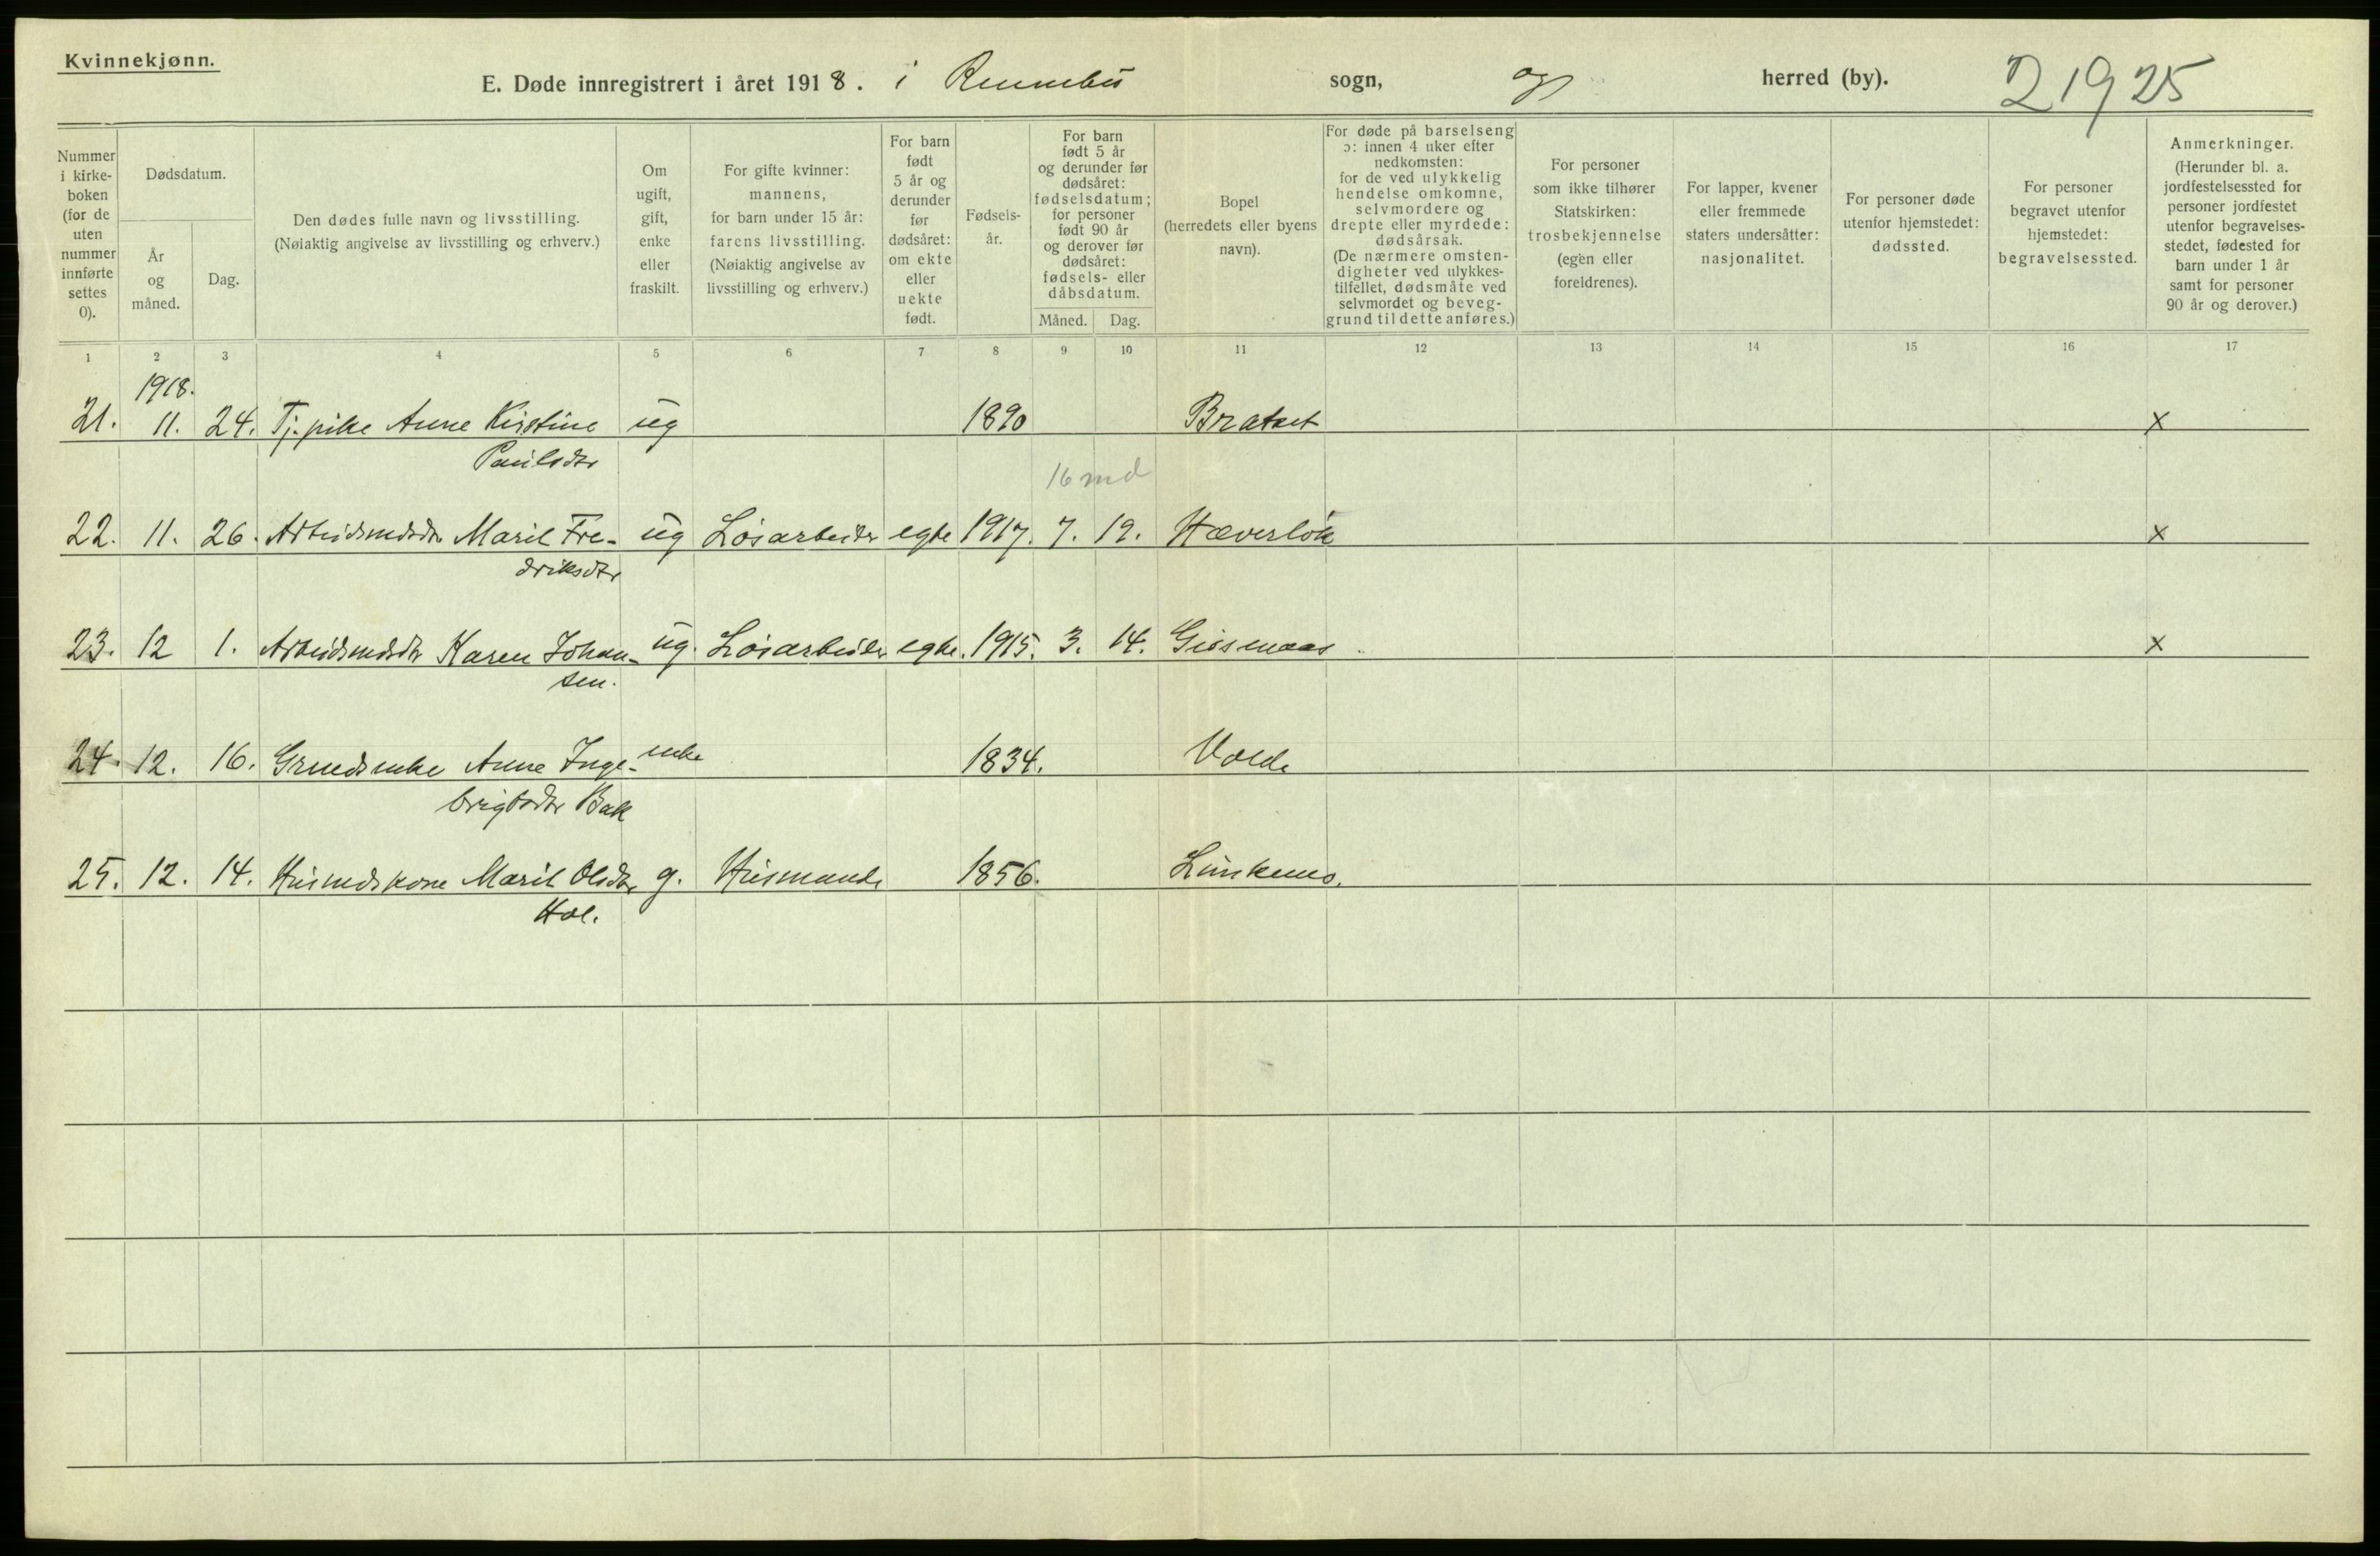 Kvinnekjønn.
E. Døde innregistrert i året 1918. i Rennebu sogn, og herred (by). 21925
Nummer i kirke-boken (for de uten nummer innførte settes 0).
Dødsdatum.
År og måned.
Dag.
Den dødes fulle navn og livsstilling. (Nøiaktig angivelse av livsstilling og erhverv.)
Om ugift, gift, enke eller fraskilt.
For gifte kvinner: mannens, for barn under 15 år: farens livsstilling. (Nøiaktig angivelse av livsstilling og erhverv.)
For barn født 5 år og derunder før dødsåret: om ekte eller uekte født.
Fødsels-år.
For barn født 5 år og derunder før dødsåret: fødselsdatum; for personer født 90 år og derover før dødsåret: fødsels- eller dåbsdatum.
Måned.
Dag.
Bopel (herredets eller byens navn).
For døde på barselseng ɔ: innen 4 uker efter nedkomsten: for de ved ulykkelig hendelse omkomne, selvmordere og drepte eller myrdede: dødsårsak. (De nærmere omsten-digheter ved ulykkes-tilfellet, dødsmåte ved selvmordet og beveg-grund til dette anføres.)
For personer som ikke tilhører Statskirken: trosbekjennelse (egen eller foreldrenes).
For lapper, kvener eller fremmede staters undersåtter: nasjonalitet.
For personer døde utenfor hjemstedet: dødssted.
For personer begravet utenfor hjemstedet: begravelsessted.
Anmerkninger. (Herunder bl. a. jordfestelsessted for personer jordfestet utenfor begravelses-stedet, fødested for barn under 1 år samt for personer 90 år og derover.)
1 2 3 4 5 6 7 8 9 10 11 12 13 14 15 16 17
1918.
21. 11. 24. Tj. pike Anne Kirstine ug 1890 Bratset x
Paulsdtr
16 md
22. 11. 26. Arbeidsmdsdtr Marit Fre- ug Løsarbeider egte 1917. 7. 19. Hæverløk x
driksdtr
23. 12 1. Arbeidsmdsdtr Karen Johan- ug. Løsarbeider egte. 1915. 3. 14. Gisemaas x
sen.
24. 12. 16. Grmdsenke Anne Inge- enke 1834. Volde
brigtsdtr Bak
25. 12. 14. Husmdskone Marit Olsdtr g. Husmands 1856.
Hol.